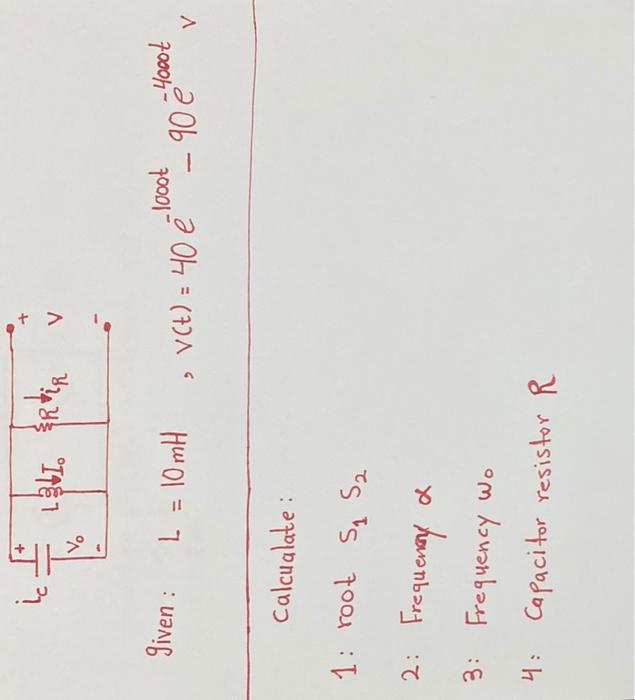 i_c + V_o - L I_o R i_R + V -
given: L = 10mH , V(t) = 40 e^-1000t - 90 e^-4000t V
Calcualate:
1: root S_1 S_2
2: Frequency α
3: Frequency W_o
4: Capacitor resistor R